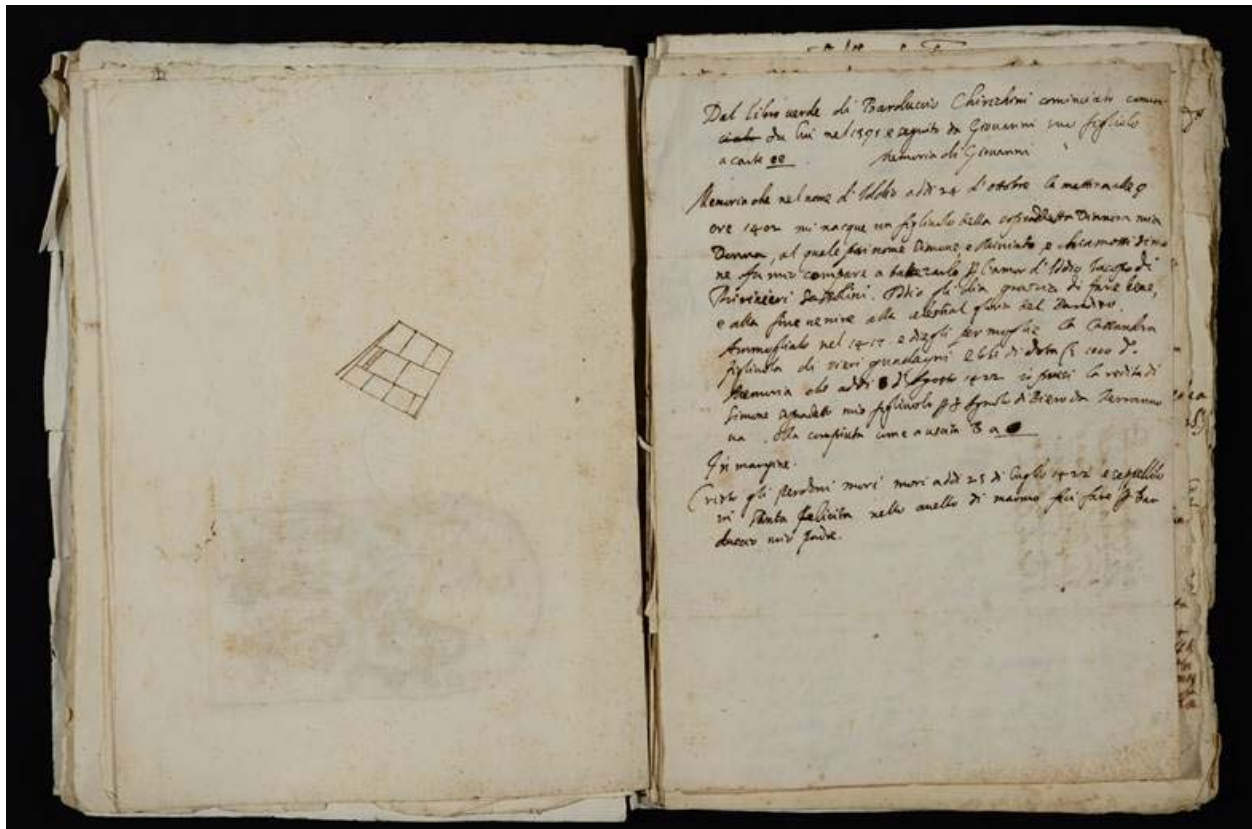 Dal libro verde di Barduccio Chirichini cominciato comin-
ciato da lui nel 1395 e seguito da Giovanni suo figliolo
a carte 22. Memoria di Giovanni
Memoria che nel nome d'Iddio addi 24 d'ottobre la mattina alle 9
ore 1402 mi nacque un figliuolo della Dianora mia
Donna, al quale posi nome Simone, e chiamossi Simo
ne e fu mio compare a battezzarlo p l'amor d'Iddio Jacopo di
Iddio gli dia grazia di fare bene,
e alla fine venire alla celestial gloria del Paradiso.
Ammogliato nel e diegli per moglie la Cassandra
figliuola di vieri guadagni ebbi di dota
Memoria che addi d'Agosto 1422 la redita di
Simone mio figliuolo p Agnolo di Piero da Terranuo
va. come a uscita B a
In margine.
morì addi 25 di luglio 1422 e seppellito
in Santa Felicita nello avello di marmo feci fare p Bar
duccio mio Padre.